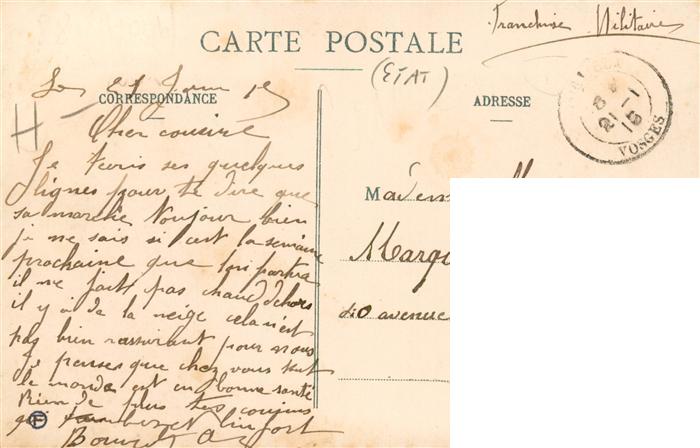 Franchise Militaire
CARTE POSTALE
(ETAT)
Le 21 Janv 15
CORRESPONDANCE
ADRESSE
8
21 - 1
15
VOSGES
H -
Cher cousine
Je tecris ses quelques
lignes pour te dire que
sa marche toujour bien
je ne sais si cest la semaine
prochaine que lon partira
il ne fait pas chaud dehors
il y a de la neige cela n'est
pas bien rassurant pour nous
Je penses que chez vous tout
le monde est en bonne santé
Rien de plus tes cousins
qui
Madem
Marg
40 avenue
F